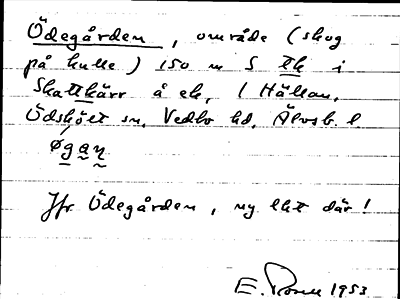 Ödegården, område (skog
på kulle) 150 m S th i
Skattkärr å ek, 1 Hällan,
Ödskölt sn, Vedbo hd, Älvsb. l
øgaṇ
Jfr Ödegården, ny lht där!
E. 1953